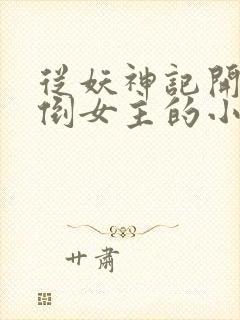 從妖神記開
倒女主的小
廿肅